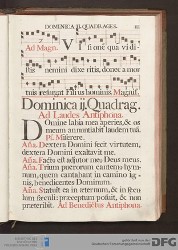 DOMINICA II. QUADRAGES.
Ad Magn. Visi oné quā vi di
stis nemini dixe ritis, donec a mor
tuis resurgat Fili us hominis Magnif.
Dominica ij. Quadrag.
Ad Laudes Antiphona.
Domine labia mea aperies, & os
meum annuntiabit laudem tuā.
Ps. Miserere.
Aña. Dextera Domini fecit virtutem,
dextera Domini exaltavit me.
Aña. Factus est adjutor meus Deus meus.
Aña. Trium puerorum cantemus hy-
mnum, quem cantabant in camino ig-
nis, benedicentes Dominum.
Aña. Statuit ea in æternum, & in sæcu-
lum sæculi: præceptum posuit, & non
præteribit. Ad Benedictus Antiphona.
DFG